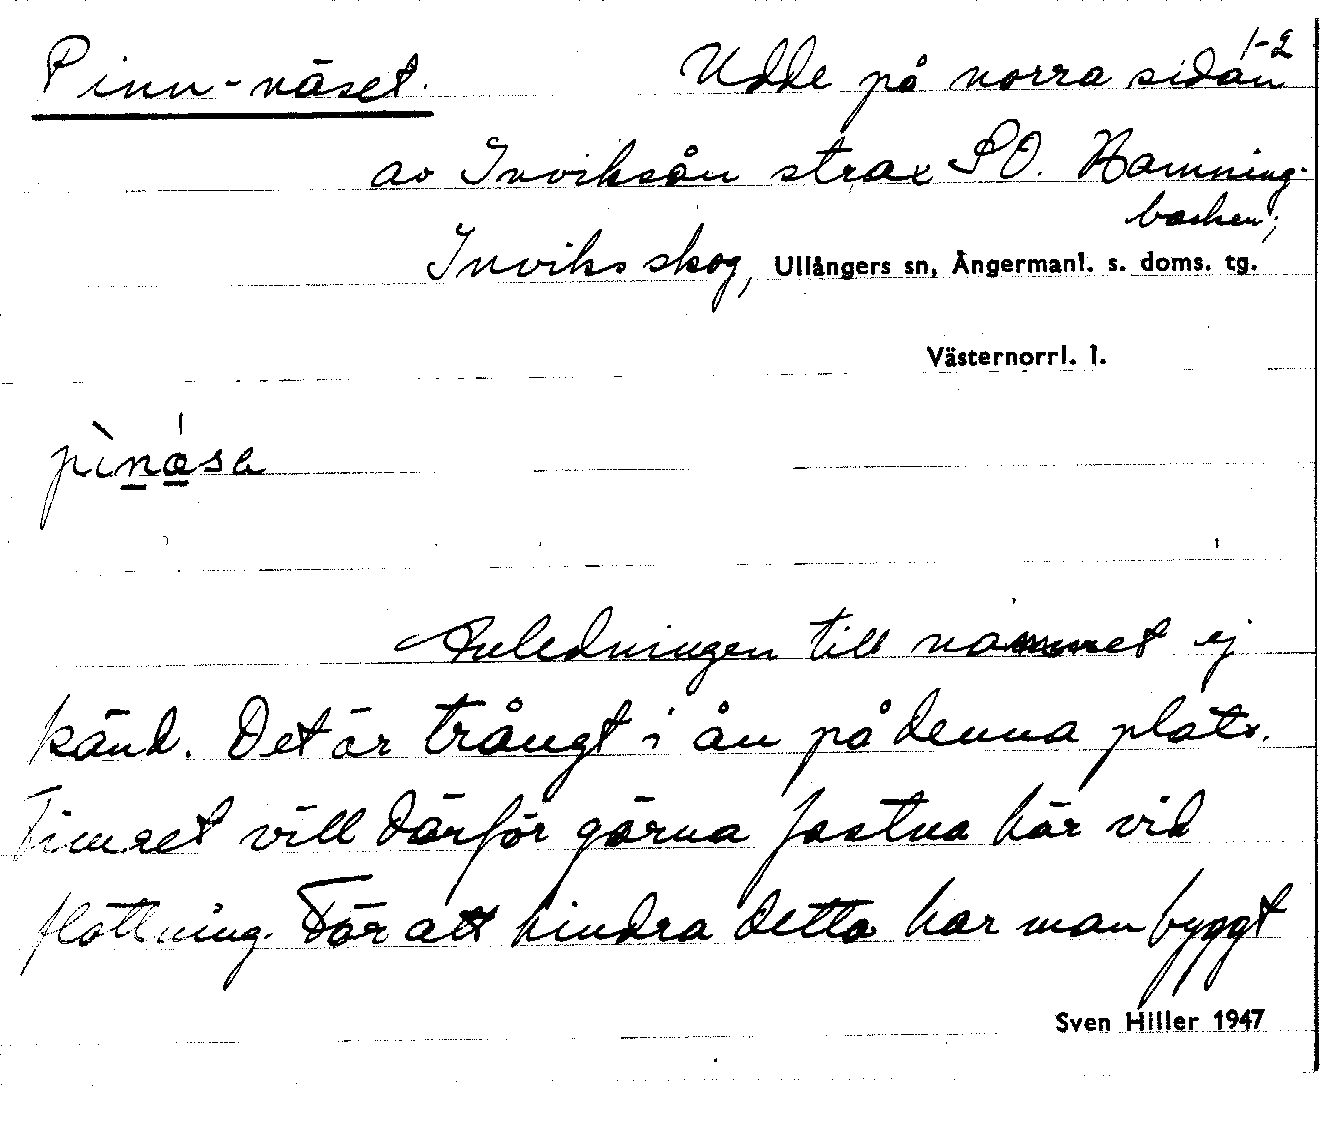 1-2
Pinn-näset. Udde på norra sidan
av Inviksån strax SO. Hamning-
backen;
Inviks skog, Ullångers sn, Ångermanl. s. doms. tg.
Västernorrl. l.
pìnása
Anledningen till namnet ej
känd. Det är trångt i ån på denna plats.
Timret vill därför gärna fastna här vid
flottning. För att hindra detta har man byggt
Sven Hiller 1947